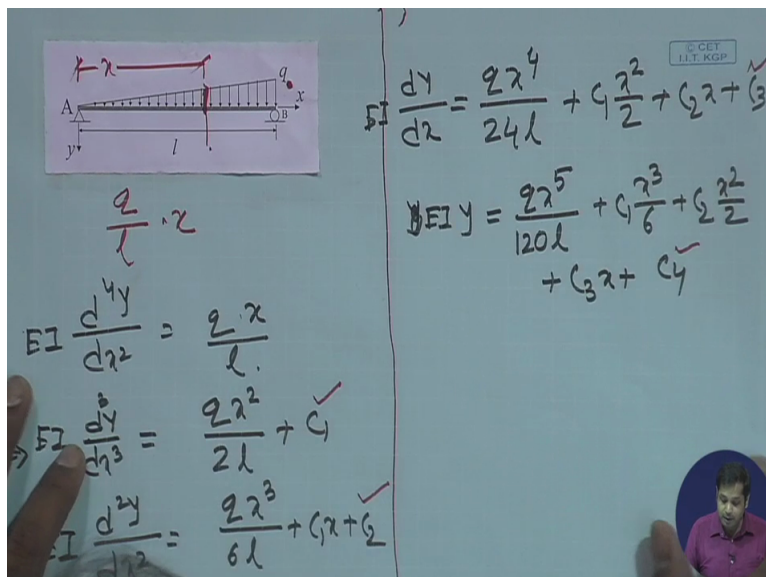 x
q
A
x
B
y
l
q/l . x
EI d⁴y/dx² = q.x/l.
⇒ EI d³y/dx³ = qx²/2l + C₁
EI d²y/dx² = qx³/6l + C₁x + C₂
© CET
I.I.T. KGP
EI dy/dx = qx⁴/24l + C₁ x²/2 + C₂x + C₃
EI y = qx⁵/120l + C₁ x³/6 + C₂ x²/2
+ C₃x + C₄